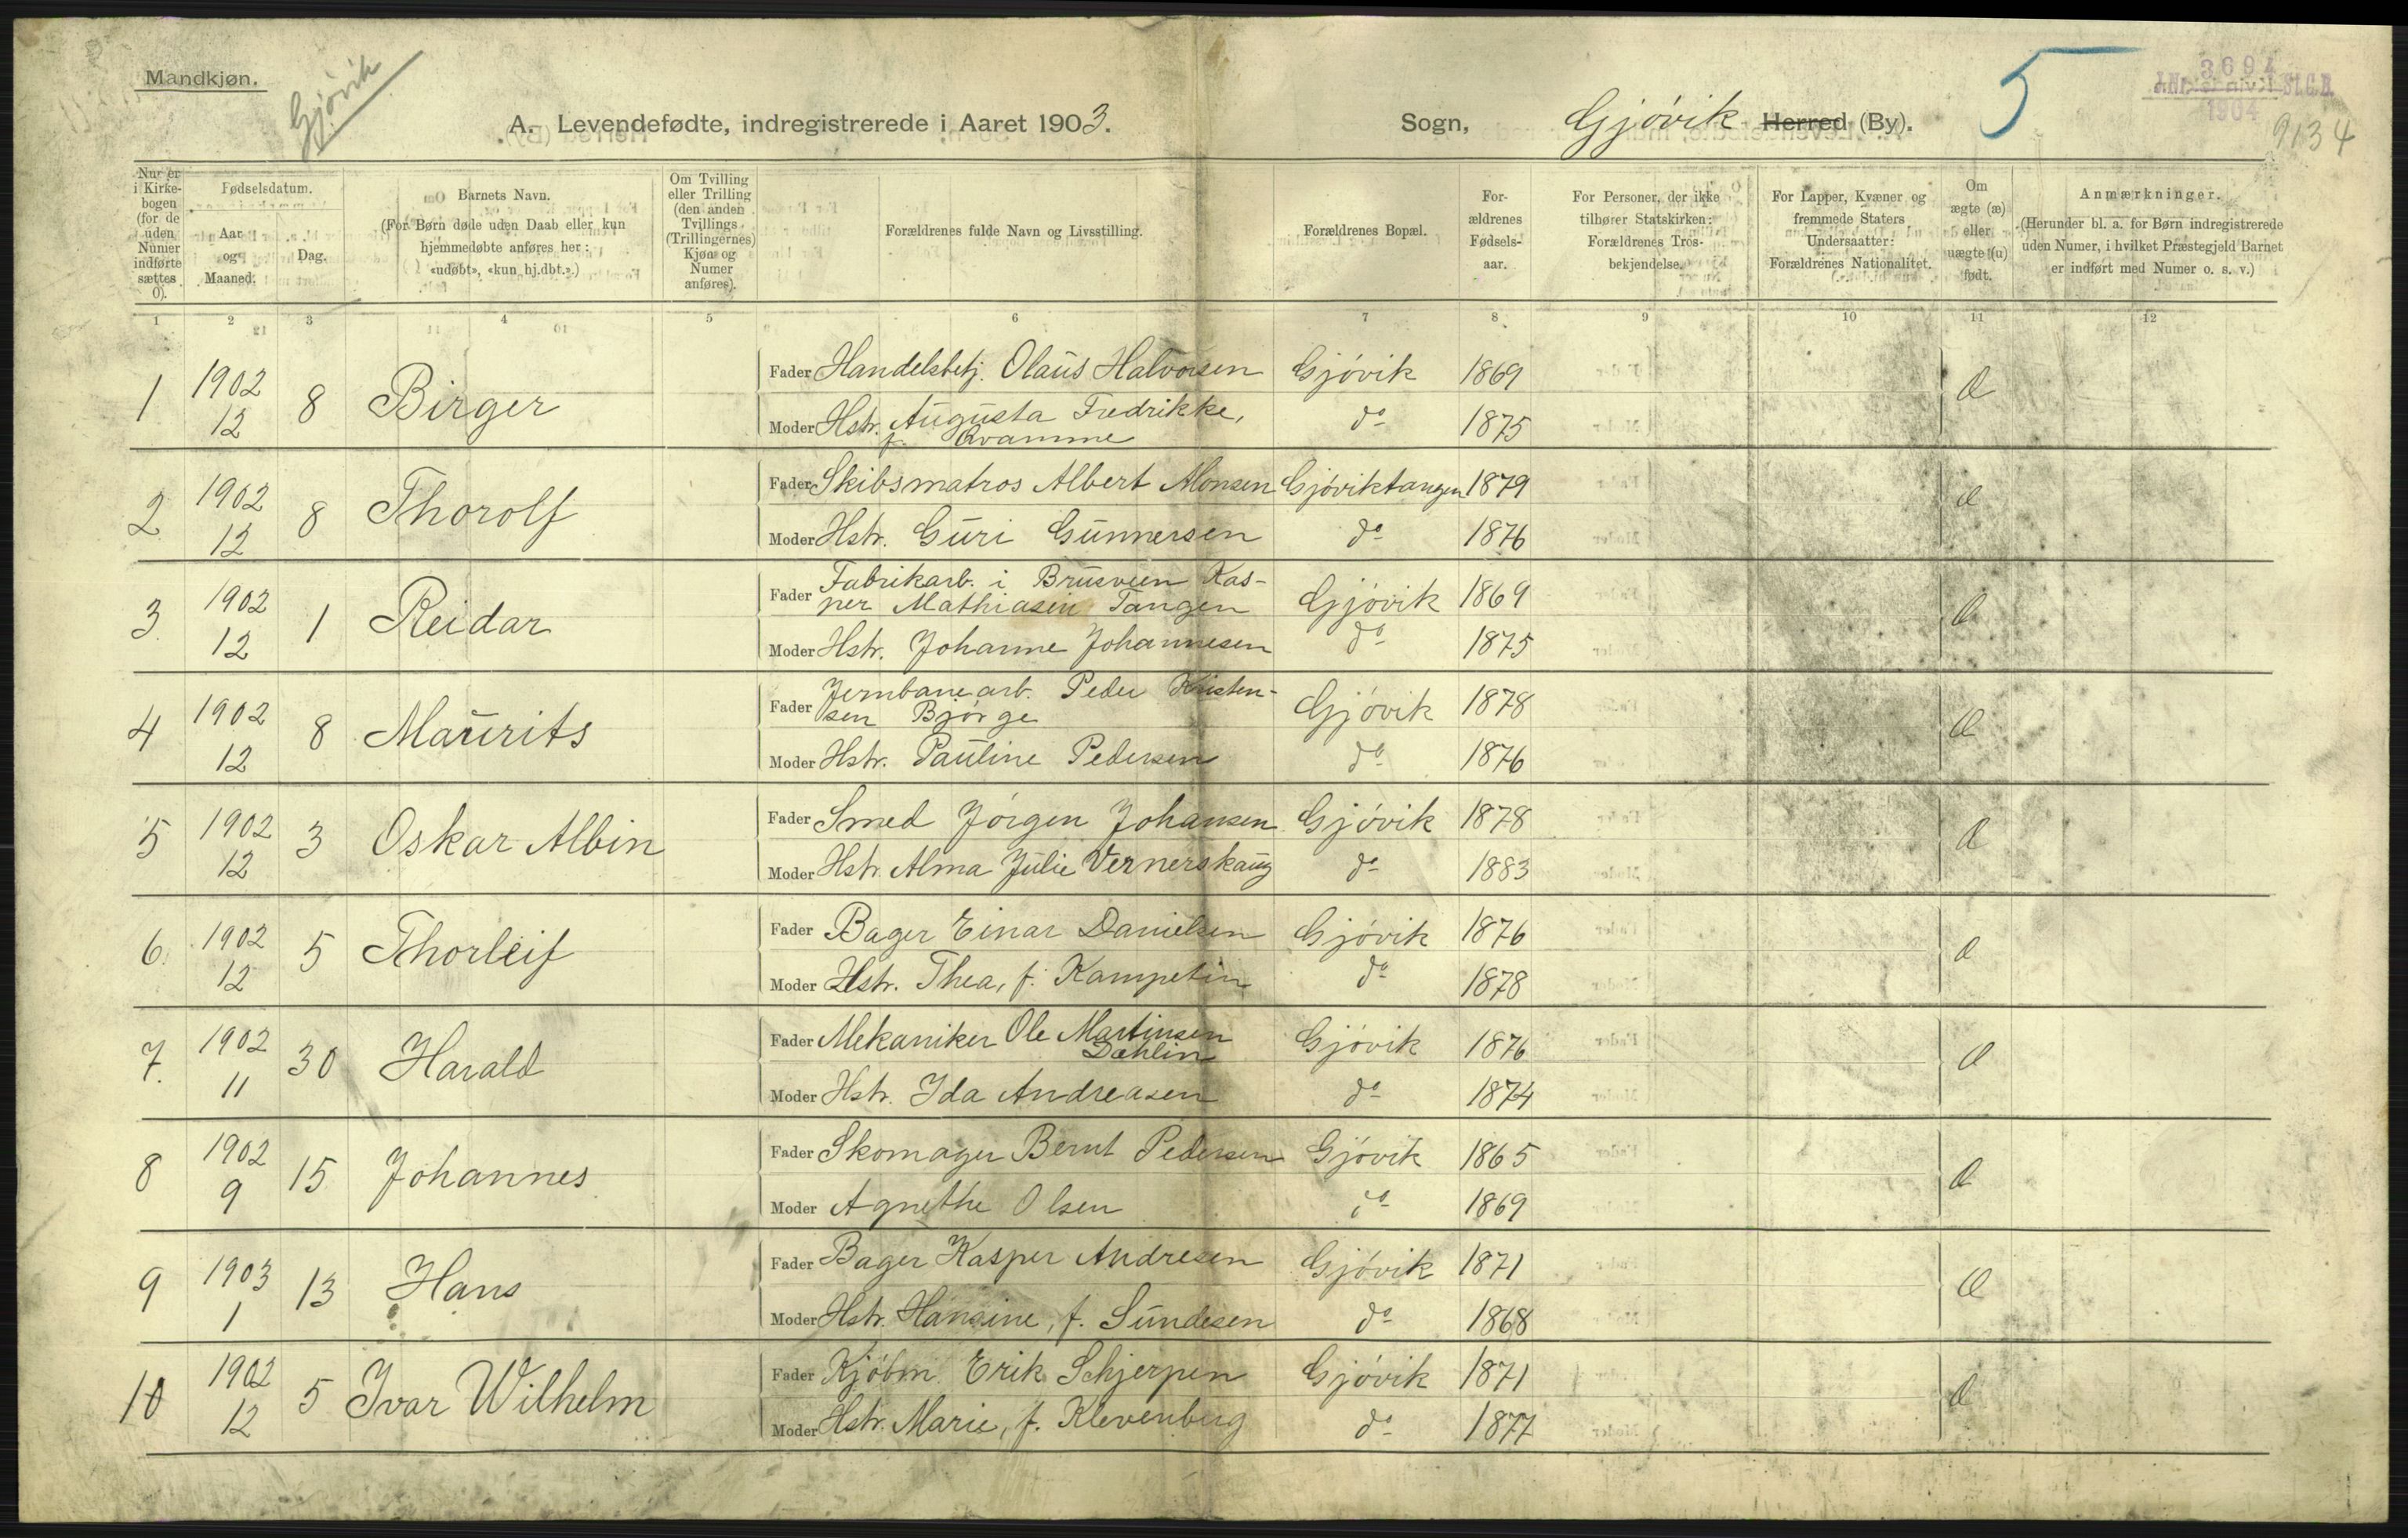 Mandkjøn.
Gjøvik
A. Levendefødte, indregistrerede i Aaret 1903.
Sogn, Gjøvik Herred (By).
5
3694
1904
9134
Numer i Kirkebogen (for de uden Numer indførte sættes 0).
Fødselsdatum.
Aar og Maaned.
Dag.
Barnets Navn.
(For Børn døde uden Daab eller kun
hjemmedøbte anføres her:
«udøbt», «kun hj.dbt.».)
Om Tvilling
eller Trilling
(den anden
Tvillings
(Trillingernes)
Kjøn og
Numer
anføres).
Forældrenes fulde Navn og Livsstilling.
Forældrenes Bopæl.
For-
ældrenes
Fødsels-
aar.
For Personer, der ikke
tilhører Statskirken:
Forældrenes Tros-
bekjendelse.
For Lapper, Kvæner og
fremmede Staters
Undersaatter:
Forældrenes Nationalitet.
Om
ægte (æ)
eller
uægte (u)
født.
Anmærkninger.
(Herunder bl. a. for Børn indregistrerede
uden Numer, i hvilket Præstegjeld Barnet
er indført med Numer o. s. v.)
1 2 3 4 5 6 7 8 9 10 11 12
1 1902 12 8 Birger
Fader Handelsbetj. Olaus Halvorsen Gjøvik 1869 Æ
Moder Hstr. Augusta Fredrikke, do 1875
f. Kvamme
2 1902 12 8 Thorolf
Fader Skibsmatros Albert Monsen Gjøviktangen 1879 æ
Moder Hstr. Guri Gunnersen do 1876
3 1902 12 1 Reidar
Fader Fabrikarb. i Brusveen Kas-
per Mathiasen Tangen Gjøvik 1869 Æ
Moder Hstr. Johanne Johannesen do 1875
4 1902 12 8 Maurits
Fader Jernbanearb. Peder Kristen-
sen Bjørge Gjøvik 1878 Æ
Moder Hstr. Pauline Pedersen do 1876
5 1902 12 3 Oskar Albin
Fader Smed Jørgen Johansen Gjøvik 1878 Æ
Moder Hstr. Alma Julie Vernerskaug do 1883
6. 1902 12 5 Thorleif
Fader Bager Einar Danielsen Gjøvik 1876 Æ
Moder Hstr. Thea, f. Kampetin do 1878
7. 1902 11 30 Harald
Fader Mekaniker Ole Martinsen
Dæhlin Gjøvik 1876 Æ
Moder Hstr. Ida Andreasen do 1874
8 1902 9 15 Johannes
Fader Skomager Bernt Pedersen Gjøvik 1865 Æ
Moder Agnethe Olsen do 1869
9 1903 1 13 Hans
Fader Bager Kasper Andresen Gjøvik 1871 Æ
Moder Hstr. Hansine, f. Sundesen do 1868
10 1902 12 5 Ivar Wilhelm
Fader Kjøbm. Erik Schjerpen Gjøvik 1871 Æ
Moder Hstr. Marie, f. Klevenberg do 1877